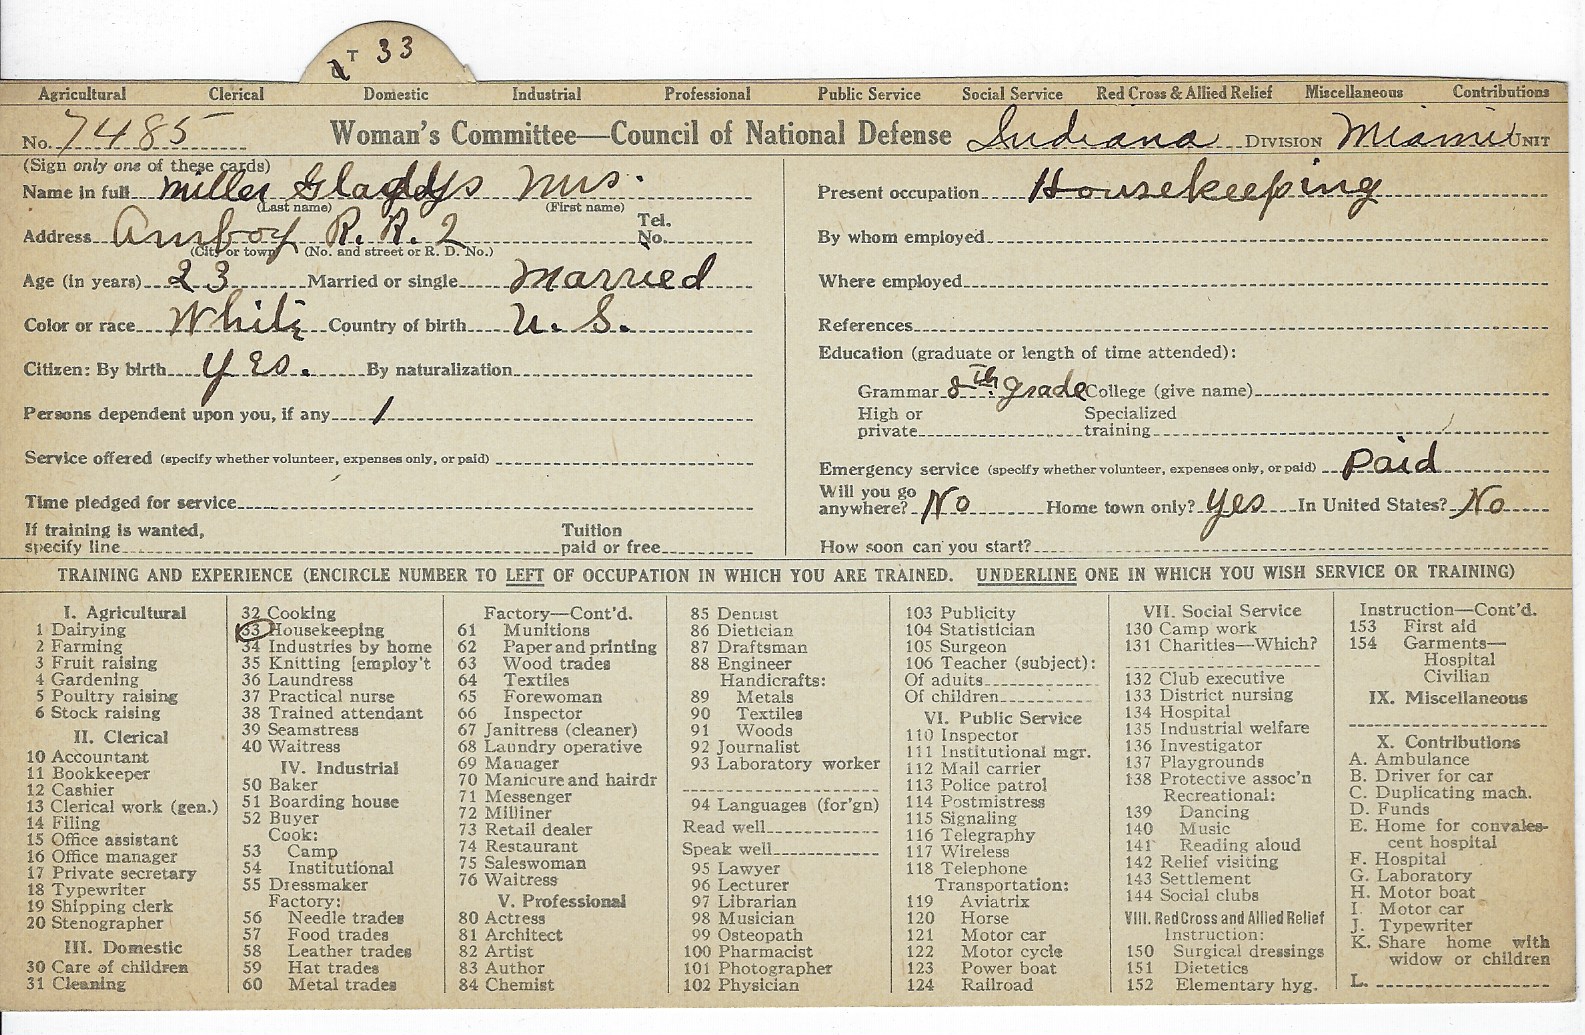 T 33
Agricultural Clerical Domestic Industrial Professional Public Service Social Service Red Cross & Allied Relief Miscellaneous Contributions
No. 7485 Woman's Committee—Council of National Defense Indiana DIVISION Miami UNIT
(Sign only one of these cards)
Name in full Miller Gladdys Mrs.
(Last name) (First name)
Address Amboy R. R. 2 Tel. No.
(City or town) (No. and street or R. D. No.)
Age (in years) 23 Married or single Married
Color or race White Country of birth U. S.
Citizen: By birth Yes. By naturalization
Persons dependent upon you, if any 1
Service offered (specify whether volunteer, expenses only, or paid)
Time pledged for service
If training is wanted, Tuition
specify line paid or free
Present occupation Housekeeping
By whom employed
Where employed
References
Education (graduate or length of time attended):
Grammar 8th grade College (give name)
High or Specialized
private training
Emergency service (specify whether volunteer, expenses only, or paid) Paid
Will you go
anywhere? No Home town only? Yes In United States? No
How soon can you start?
TRAINING AND EXPERIENCE (ENCIRCLE NUMBER TO LEFT OF OCCUPATION IN WHICH YOU ARE TRAINED. UNDERLINE ONE IN WHICH YOU WISH SERVICE OR TRAINING)
I. Agricultural
1 Dairying
2 Farming
3 Fruit raising
4 Gardening
5 Poultry raising
6 Stock raising
II. Clerical
10 Accountant
11 Bookkeeper
12 Cashier
13 Clerical work (gen.)
14 Filing
15 Office assistant
16 Office manager
17 Private secretary
18 Typewriter
19 Shipping clerk
20 Stenographer
III. Domestic
30 Care of children
31 Cleaning
32 Cooking
33 Housekeeping
34 Industries by home
35 Knitting [employ't
36 Laundress
37 Practical nurse
38 Trained attendant
39 Seamstress
40 Waitress
IV. Industrial
50 Baker
51 Boarding house
52 Buyer
Cook:
53 Camp
54 Institutional
55 Dressmaker
Factory:
56 Needle trades
57 Food trades
58 Leather trades
59 Hat trades
60 Metal trades
Factory—Cont'd.
61 Munitions
62 Paper and printing
63 Wood trades
64 Textiles
65 Forewoman
66 Inspector
67 Janitress (cleaner)
68 Laundry operative
69 Manager
70 Manicure and hairdr
71 Messenger
72 Milliner
73 Retail dealer
74 Restaurant
75 Saleswoman
76 Waitress
V. Professional
80 Actress
81 Architect
82 Artist
83 Author
84 Chemist
85 Dentist
86 Dietician
87 Draftsman
88 Engineer
Handicrafts:
89 Metals
90 Textiles
91 Woods
92 Journalist
93 Laboratory worker
94 Languages (for'gn)
Read well
Speak well
95 Lawyer
96 Lecturer
97 Librarian
98 Musician
99 Osteopath
100 Pharmacist
101 Photographer
102 Physician
103 Publicity
104 Statistician
105 Surgeon
106 Teacher (subject):
Of adults
Of children
VI. Public Service
110 Inspector
111 Institutional mgr.
112 Mail carrier
113 Police patrol
114 Postmistress
115 Signaling
116 Telegraphy
117 Wireless
118 Telephone
Transportation:
119 Aviatrix
120 Horse
121 Motor car
122 Motor cycle
123 Power boat
124 Railroad
VII. Social Service
130 Camp work
131 Charities—Which?
132 Club executive
133 District nursing
134 Hospital
135 Industrial welfare
136 Investigator
137 Playgrounds
138 Protective assoc'n
Recreational:
139 Dancing
140 Music
141 Reading aloud
142 Relief visiting
143 Settlement
144 Social clubs
VIII. Red Cross and Allied Relief
Instruction:
150 Surgical dressings
151 Dietetics
152 Elementary hyg.
Instruction—Cont'd.
153 First aid
154 Garments—
Hospital
Civilian
IX. Miscellaneous
X. Contributions
A. Ambulance
B. Driver for car
C. Duplicating mach.
D. Funds
E. Home for convales-
cent hospital
F. Hospital
G. Laboratory
H. Motor boat
I. Motor car
J. Typewriter
K. Share home with
widow or children
L.